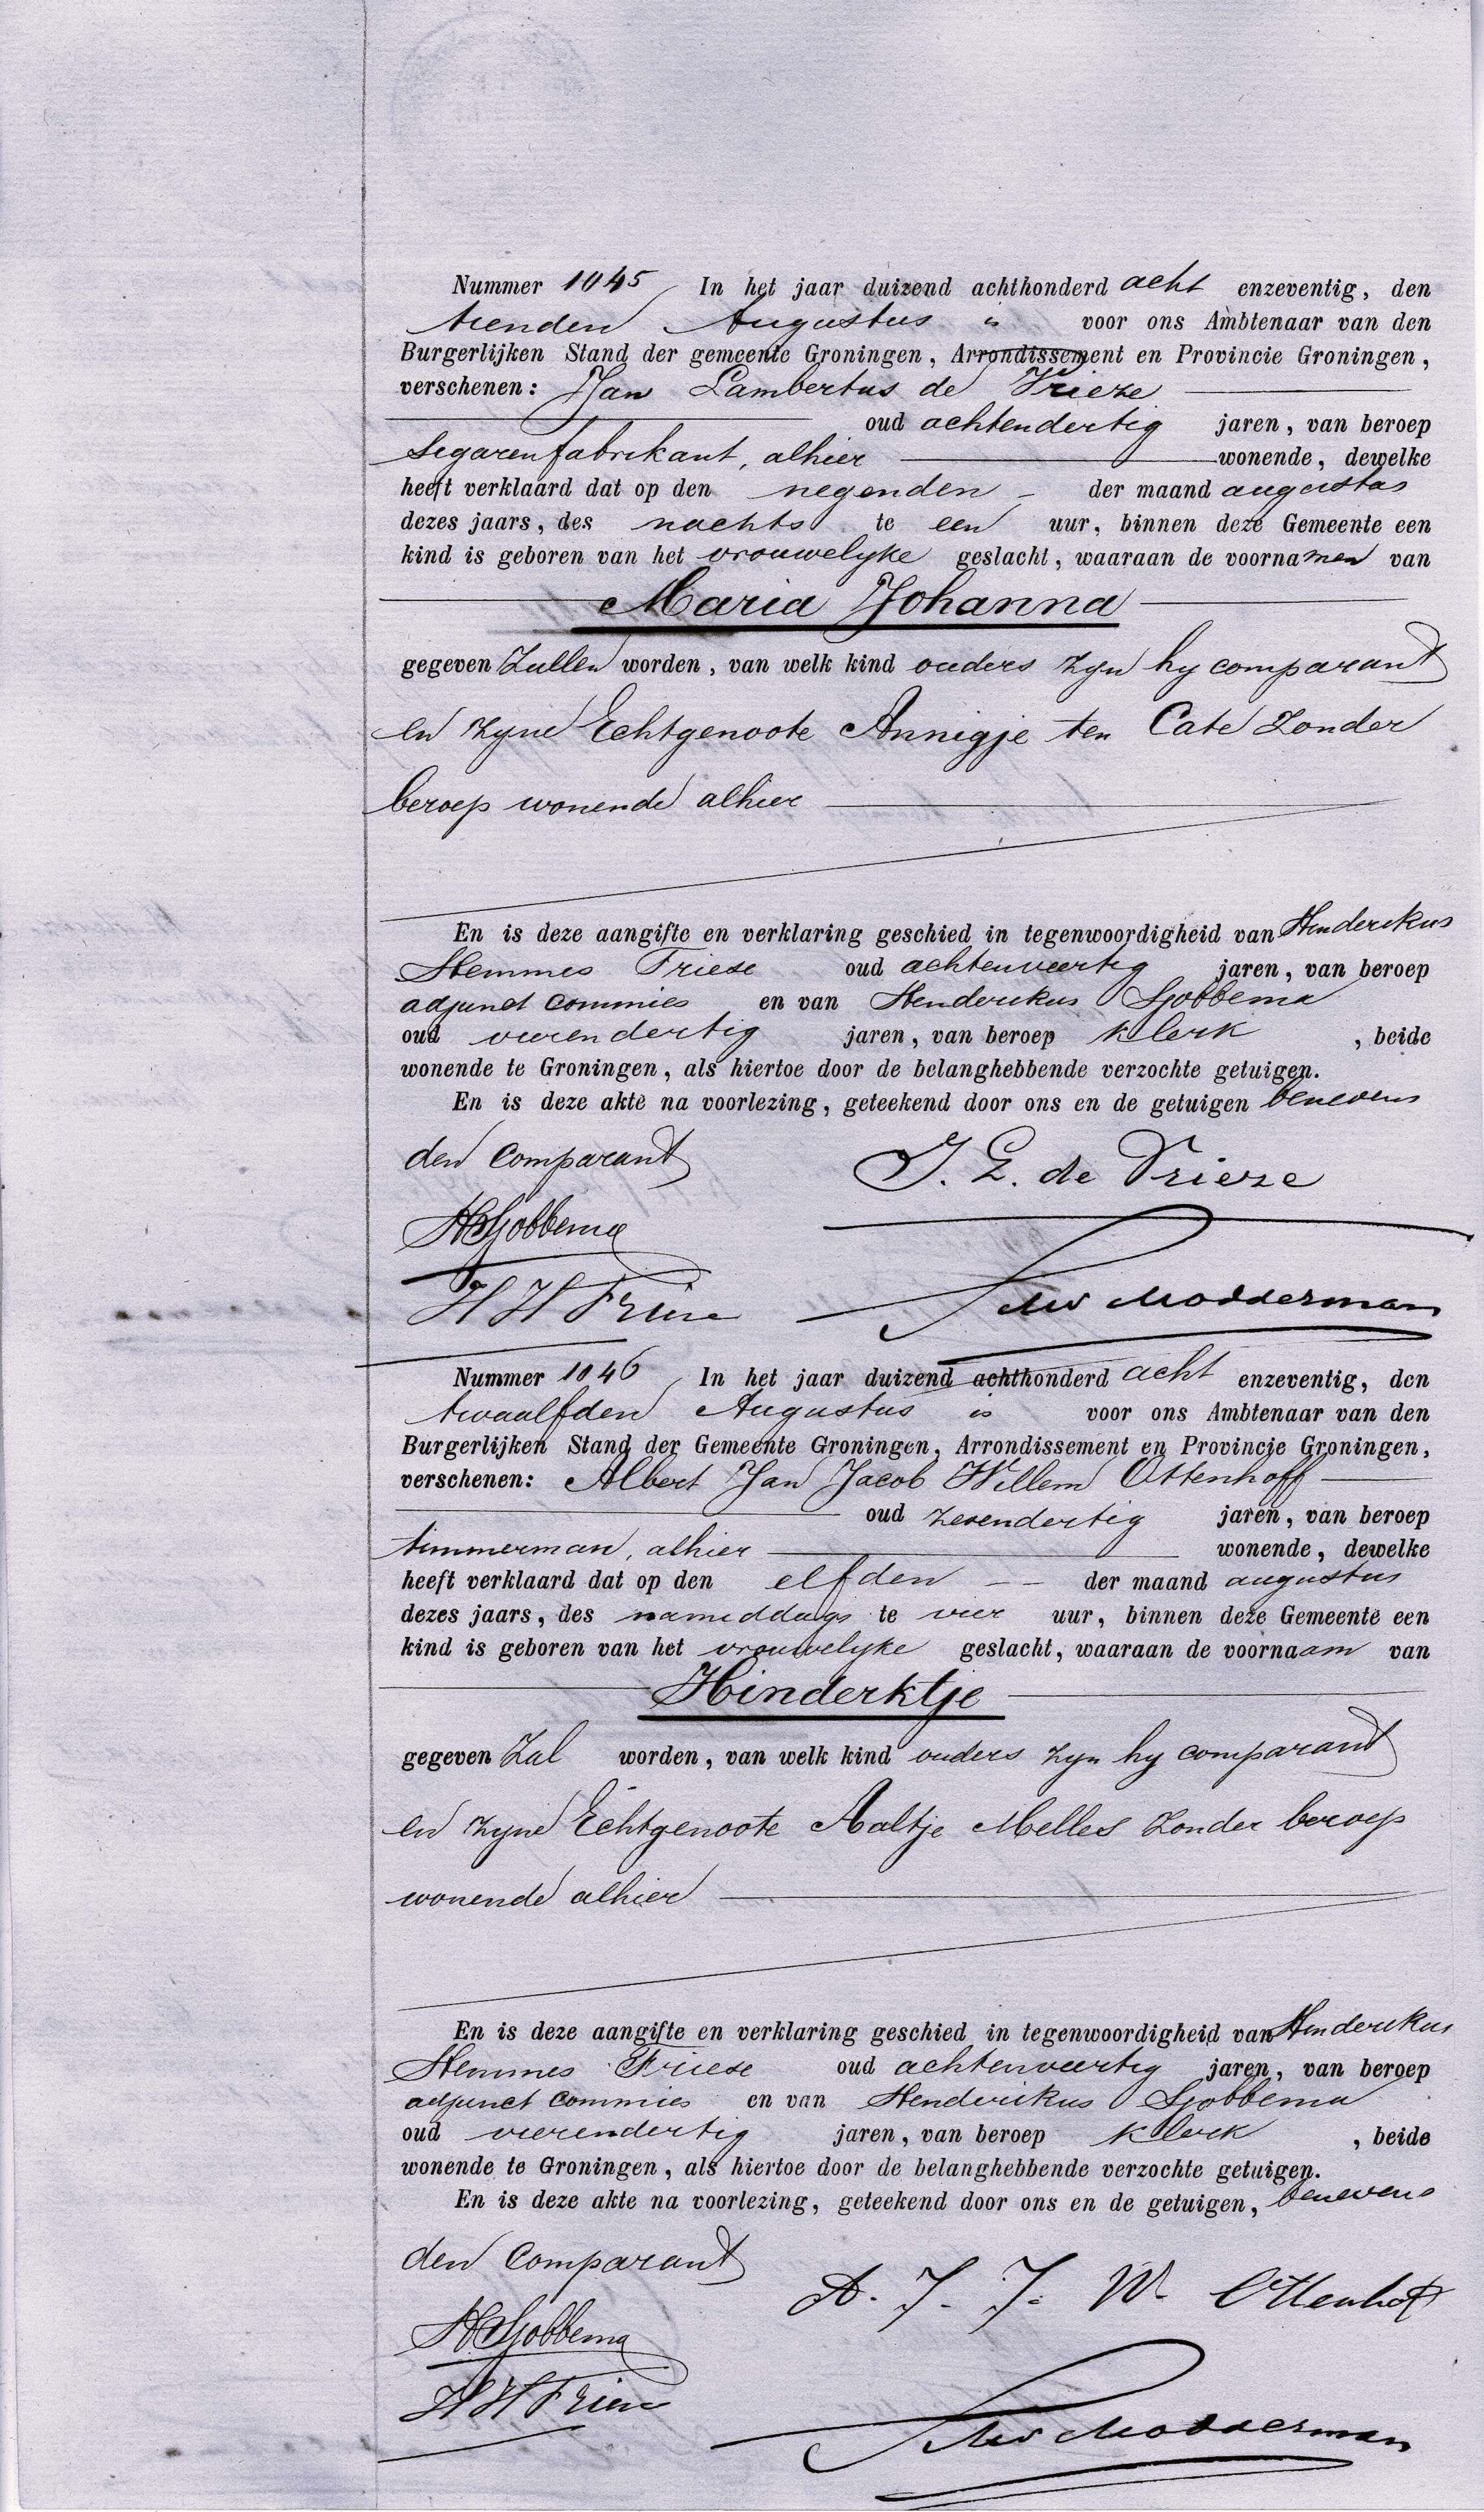 Nummer 1045 In het jaar duizend achthonderd acht enzeventig, den
tienden Augustus is voor ons Ambtenaar van den
Burgerlijken Stand der gemeente Groningen, Arrondissement en Provincie Groningen,
verschenen: Jan Lambertus de Vrieze
oud achtendertig jaren, van beroep
segarenfabrikant, alhier wonende, dewelke
heeft verklaard dat op den negenden der maand augustus
dezes jaars, des nachts te een uur, binnen deze Gemeente een
kind is geboren van het vrouwelyke geslacht, waaraan de voornamen van
Maria Johanna
gegeven Zullen worden, van welk kind ouders zyn hy comparant
en zyne Echtgenoote Annigje ten Cate zonder
beroep wonende alhier
En is deze aangifte en verklaring geschied in tegenwoordigheid van Henderikus
Hemmes Friese oud achtenveertig jaren, van beroep
adjunct commies en van Henderikus Sjobbema
oud vierendertig jaren, van beroep klerk, beide
wonende te Groningen, als hiertoe door de belanghebbende verzochte getuigen.
En is deze akte na voorlezing, geteekend door ons en de getuigen benevens
den comparant J. L. de Vrieze
HSjobbema
H H Friese Modderman
Nummer 1046 In het jaar duizend achthonderd acht enzeventig, den
twaalfden Augustus is voor ons Ambtenaar van den
Burgerlijken Stand der Gemeente Groningen, Arrondissement en Provincie Groningen,
verschenen: Albert Jan Jacob Willem Ottenhoff
oud zesendertig jaren, van beroep
timmerman, alhier wonende, dewelke
heeft verklaard dat op den elfden der maand augustus
dezes jaars, des namiddags te vier uur, binnen deze Gemeente een
kind is geboren van het vrouwelyke geslacht, waaraan de voornaam van
Hinderktje
gegeven Zal worden, van welk kind ouders zyn hy comparant
en zyne Echtgenoote Aaltje Melles zonder beroep
wonende alhier
En is deze aangifte en verklaring geschied in tegenwoordigheid van Henderikus
Hemmes Friese oud achtenveertig jaren, van beroep
adjunct commies en van Henderikus Sjobbema
oud vierendertig jaren, van beroep klerk, beide
wonende te Groningen, als hiertoe door de belanghebbende verzochte getuigen.
En is deze akte na voorlezing, geteekend door ons en de getuigen, benevens
den comparant A. J. J. W. Ottenhoff
HSjobbema
H H Friese Modderman